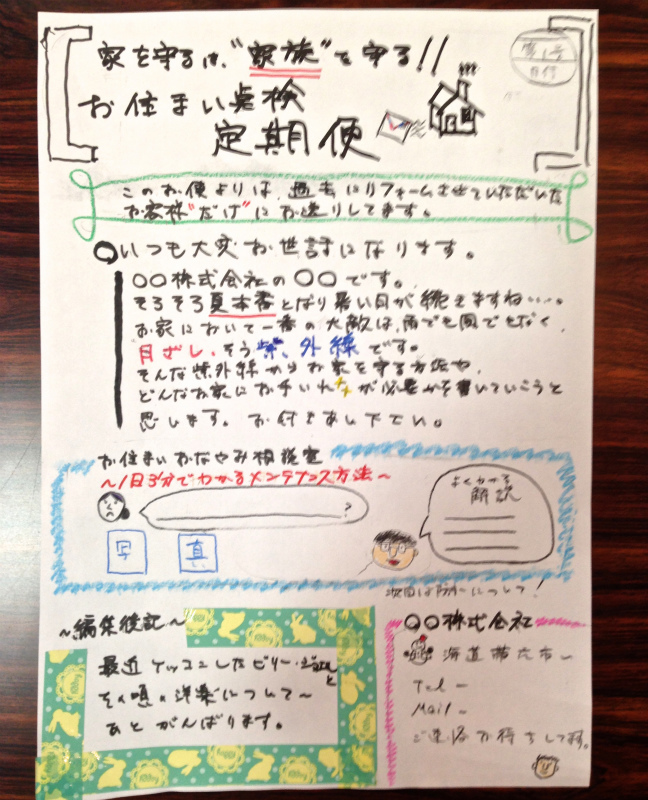 家を守るは、"家族"を守る!!
第1号
日付
お住まい点検
定期便
このお便よりは、過去にリフォームさせていただいた
お客様"だけ"にお送りしてます。
いつも大変お世話になります。
〇〇株式会社の〇〇です。
そろそろ夏本番となり暑い日が続きますね…。
お家において一番の大敵は、雨でも風でもなく、
日ざし、そう紫外線です。
そんな紫外線からお家を守る方法や、
どんなお家にお手いれが必要かを書いていこうと
思います。お付きあい下さい。
お住まいおなやみ相談室
～1日3分でわかるメンテナンス方法～
?
よくわかる
解説
写
真
次回は防水について!
～編集後記～
最近ケッコンしたビリー・
その頃の洋楽について～
あとがんばります。
〇〇株式会社
海道帯広市～
Tel～
Mail～
ご連絡お待ちしてます。